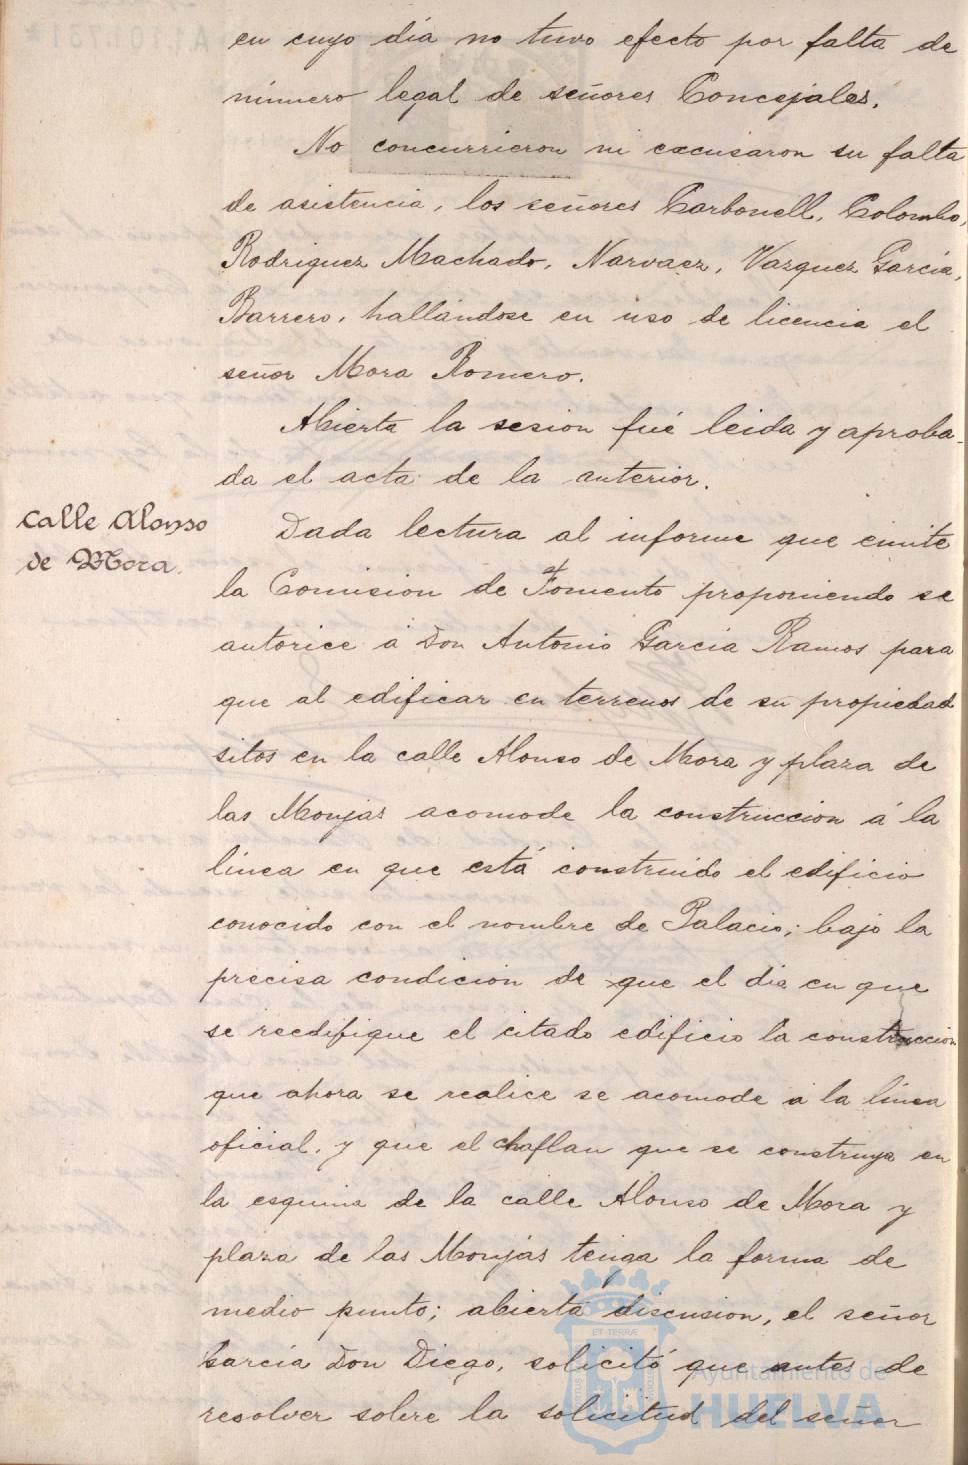 en cuyo dia no tuvo efecto por falta de
número legal de señores Concejales.
No concurrieron ni excusaron su falta
de asistencia, los señores Carbonell, Colombo,
Rodriguez Machado, Narvaez, Vazquez Garcia,
Barrero, hallándose en uso de licencia el
señor Mora Romero.
Abierta la sesion fué leida y aproba-
da el acta de la anterior.
Calle Alonso
de Mora.
Dada lectura al informe que emite
la Comision de Fomento proponiendo se
autorice á Don Antonio Garcia Ramos para
que al edificar en terrenos de su propiedad
sitos en la calle Alonso de Mora y plaza de
las Monjas acomode la construccion á la
línea en que está construido el edificio
conocido con el nombre de Palacio; bajo la
precisa condicion de que el dia en que
se reedifique el citado edificio la construccion
que ahora se realice se acomode a la línea
oficial, y que el chaflan que se construya en
la esquina de la calle Alonso de Mora y
plaza de las Monjas tenga la forma de
medio punto; abierta discusion, el señor
Garcia Don Diego, solicitó que antes de
resolver sobre la solicitud del señor
Ayuntamiento de
HUELVA